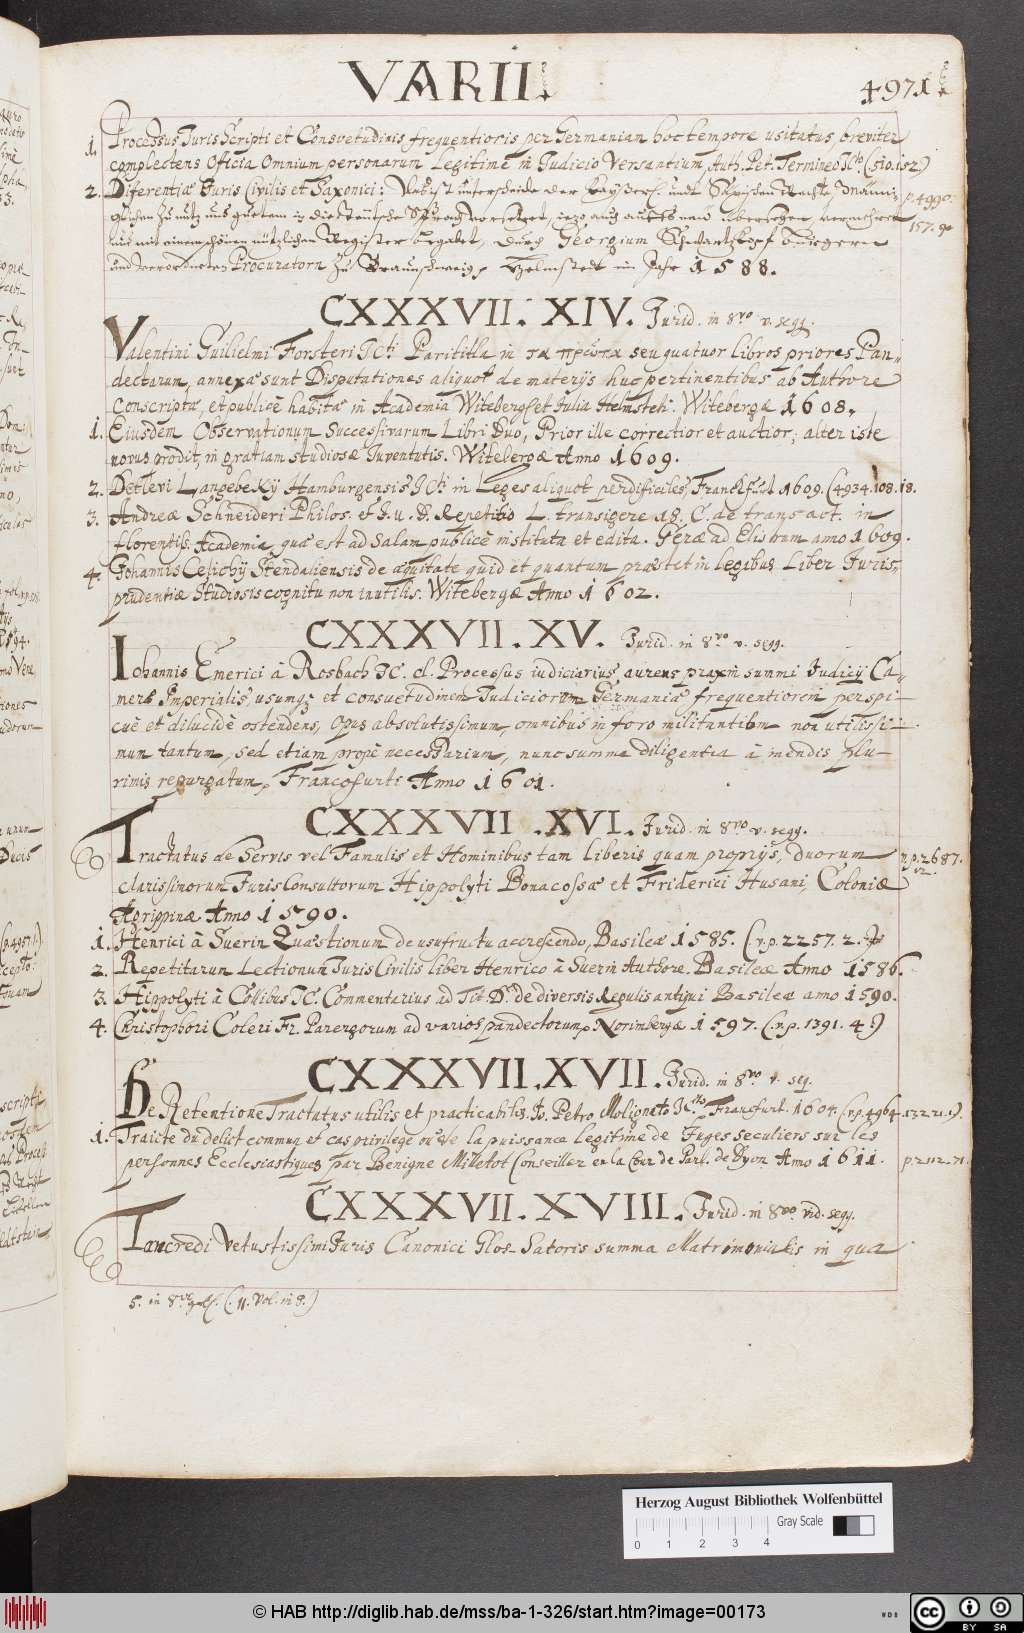 VARII.
4971
1. Processus Juris Scripti et Consvetudinis frequentioris per Germaniam hoc tempore usitatus, breviter
complectens Officia Omnium personarum Legitimè in Judicio Versantium, Auth. Pet. Termineo JCto (510.1.52)
2. Diferentiæ Juris Civilis et Saxonici: 
p. 4990.
157. 90
Georgium Schwartzkopf Bürgern
und verordneten Procuratorn zu Braunschweig, Helmstedt im Jahr 1588.
CXXXVII. XIV. Jurid. in 8vo v. seqq.
Valentini Guilielmi Forsteri JCti Paratitla in τα πρῶτα seu quatuor libros priores Pan-
dectarum, annexæ sunt Disputationes aliquot de materijs huc pertinentibus ab Authore
conscriptæ, et publicè habitæ in Academia Witeberg. et Julia Helmsteti. Witebergæ 1608.
1. Eiusdem Observationum Successivarum Libri Duo, Prior ille correctior et auctior; alter iste
novus prodit, in gratiam studiosæ Juventutis. Witebergæ Anno 1609.
2. Detlevi Langebeky Hamburgensis JCti in Leges aliquot perdificiles, Franckfurt 1609. (4934.108.18.
3. Andreæ Schneideri Philos. et J.U.D. Repetitio L. transigere 18. C. de transact. in
florentiss. Academia, quæ est ad Salam publicè instituta et edita. Geræ ad Elistrum anno 1609.
4. Johannis Cesichij Stendaliensis de æquitate quid et quantum præstet in legibus Liber Juris-
prudentiæ Studiosis cognitu non inutilis. Witebergæ Anno 1602.
CXXXVII. XV. Jurid. in 8vo v. seqq.
Iohannis Emerici à Rosbach JC. cl. Processus iudiciarius, aureus, praxin summi Judicij Ca-
meræ Imperialis, usumq; et consuetudinem Judiciorum Germaniæ frequentiorem perspi-
cuè et dilucidè ostendens, Opus absolutissimum, omnibus in foro militantibus non utilissi-
mum tantum, sed etiam propè necessarium, nunc summa diligentia à mendis plu-
rimis repurgatum, Francofurti Anno 1601.
CXXXVII. XVI. Jurid. in 8vo v. seqq.
Tractatus de Servis vel Famulis et Hominibus tam liberis quam proprijs, duorum
v.p. 2687.
v2.
clarissimorum JurisConsultorum Hippolyti Bonacossæ et Friderici Husani, Coloniæ
Agrippinæ Anno 1590.
1. Henrici à Suerin Quæstionum de usufructu accrescendo, Basileæ 1585. (v.p. 2257. 2.)
2. Repetitarum Lectionum Juris Civilis liber Henrico à Suerin Authore. Basileæ Anno 1586.
3. Hippolyti à Collibus JC. Commentarius ad Tit. D. de diversis Regulis antiqui Basileæ anno 1590.
4. Christophori Coleri Fr. Parergorum ad varios pandectorum, Norimbergæ 1597. (v.p. 1391. 4.)
CXXXVII. XVII. Jurid. in 8vo v. seq.
De Retentione Tractatus utilis et practicabilis, Petro Molignato JCto Francfurt. 1604. (v.p. 4964.
1. Traicte du delict commun et cas privilege ou de la puissance legitime de Juges seculiers sur les
personnes Ecclesiastiques par Benigne Milletot Conseiller en la Cour de Parl. de Dyon Anno 1611.
p. 2112. 71.
CXXXVII. XVIII. Jurid. in 8vo vid. seqq.
Tancredi Vetustissimi Juris Canonici Glos-Satoris summa Matrimonialis in qua
5. in 8vo (11. Vol. in 8.)
Herzog August Bibliothek Wolfenbüttel
Gray Scale
0 1 2 3 4
© HAB http://diglib.hab.de/mss/ba-1-326/start.htm?image=00173
cc BY SA